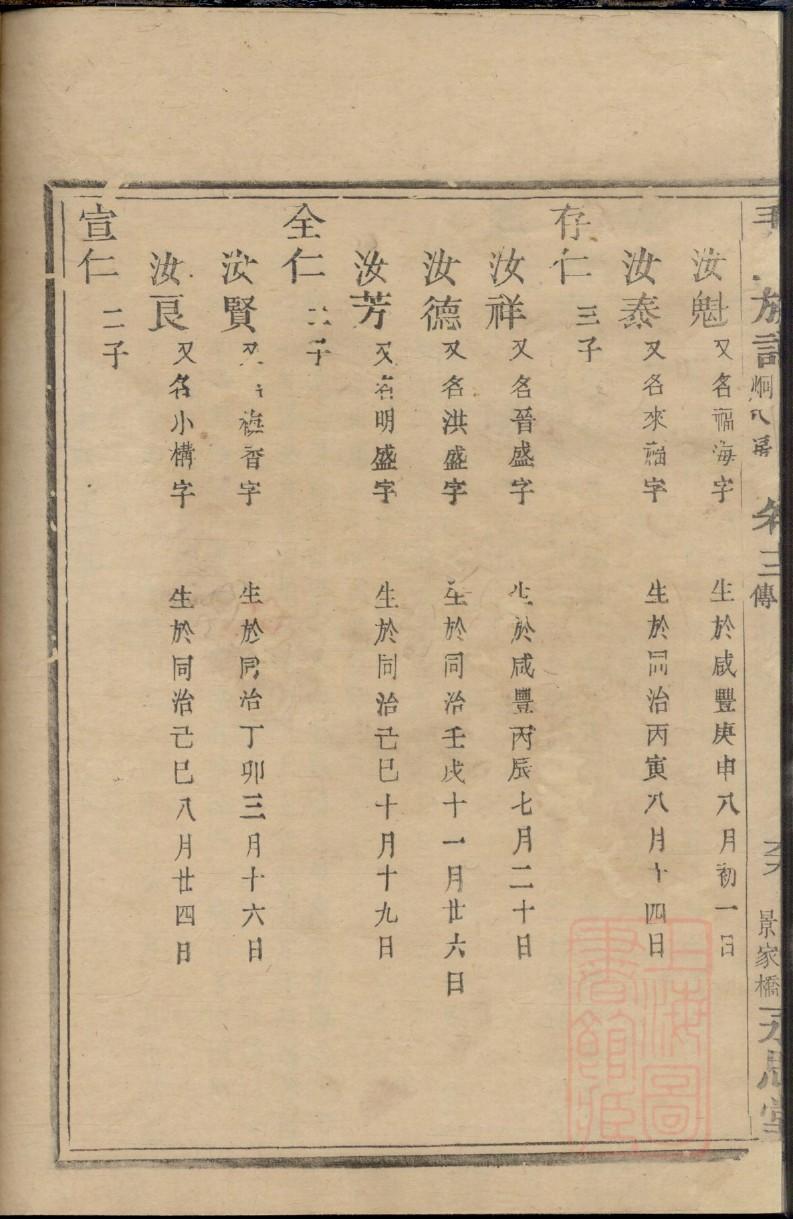 族譜 炯八房 卷三 傳 景家橋 永思堂
汝魁 又名福海字 生於咸豐庚申八月初一日
汝泰 又名來福字 生於同治丙寅八月十四日
存仁 三子
汝祥 又名晉盛字 生於咸豐丙辰七月二十日
汝德 又名洪盛字 生於同治壬戌十一月廿六日
汝芳 又名明盛字 生於同治己巳十月十九日
全仁 二子
汝賢 又名 香字 生於同治丁卯三月十六日
汝良 又名小構字 生於同治己巳八月廿四日
宣仁 二子
上海圖書館藏